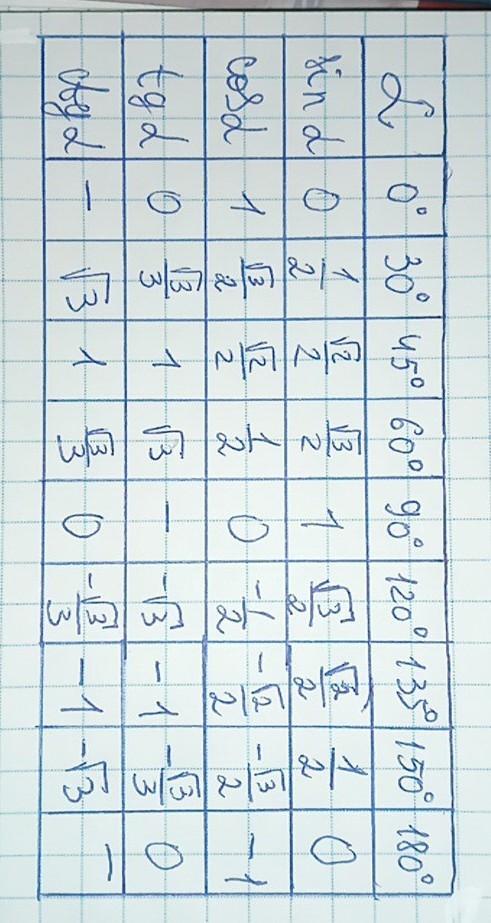 α 0° 30° 45° 60° 90° 120° 135° 150° 180°
sin α 0 1/2 √2/2 √3/2 1 √3/2 √2/2 1/2 0
cos α 1 √3/2 √2/2 1/2 0 -1/2 -√2/2 -√3/2 -1
tg α 0 √3/3 1 √3 - -√3 -1 -√3/3 0
ctg α - √3 1 √3/3 0 -√3/3 -1 -√3 -